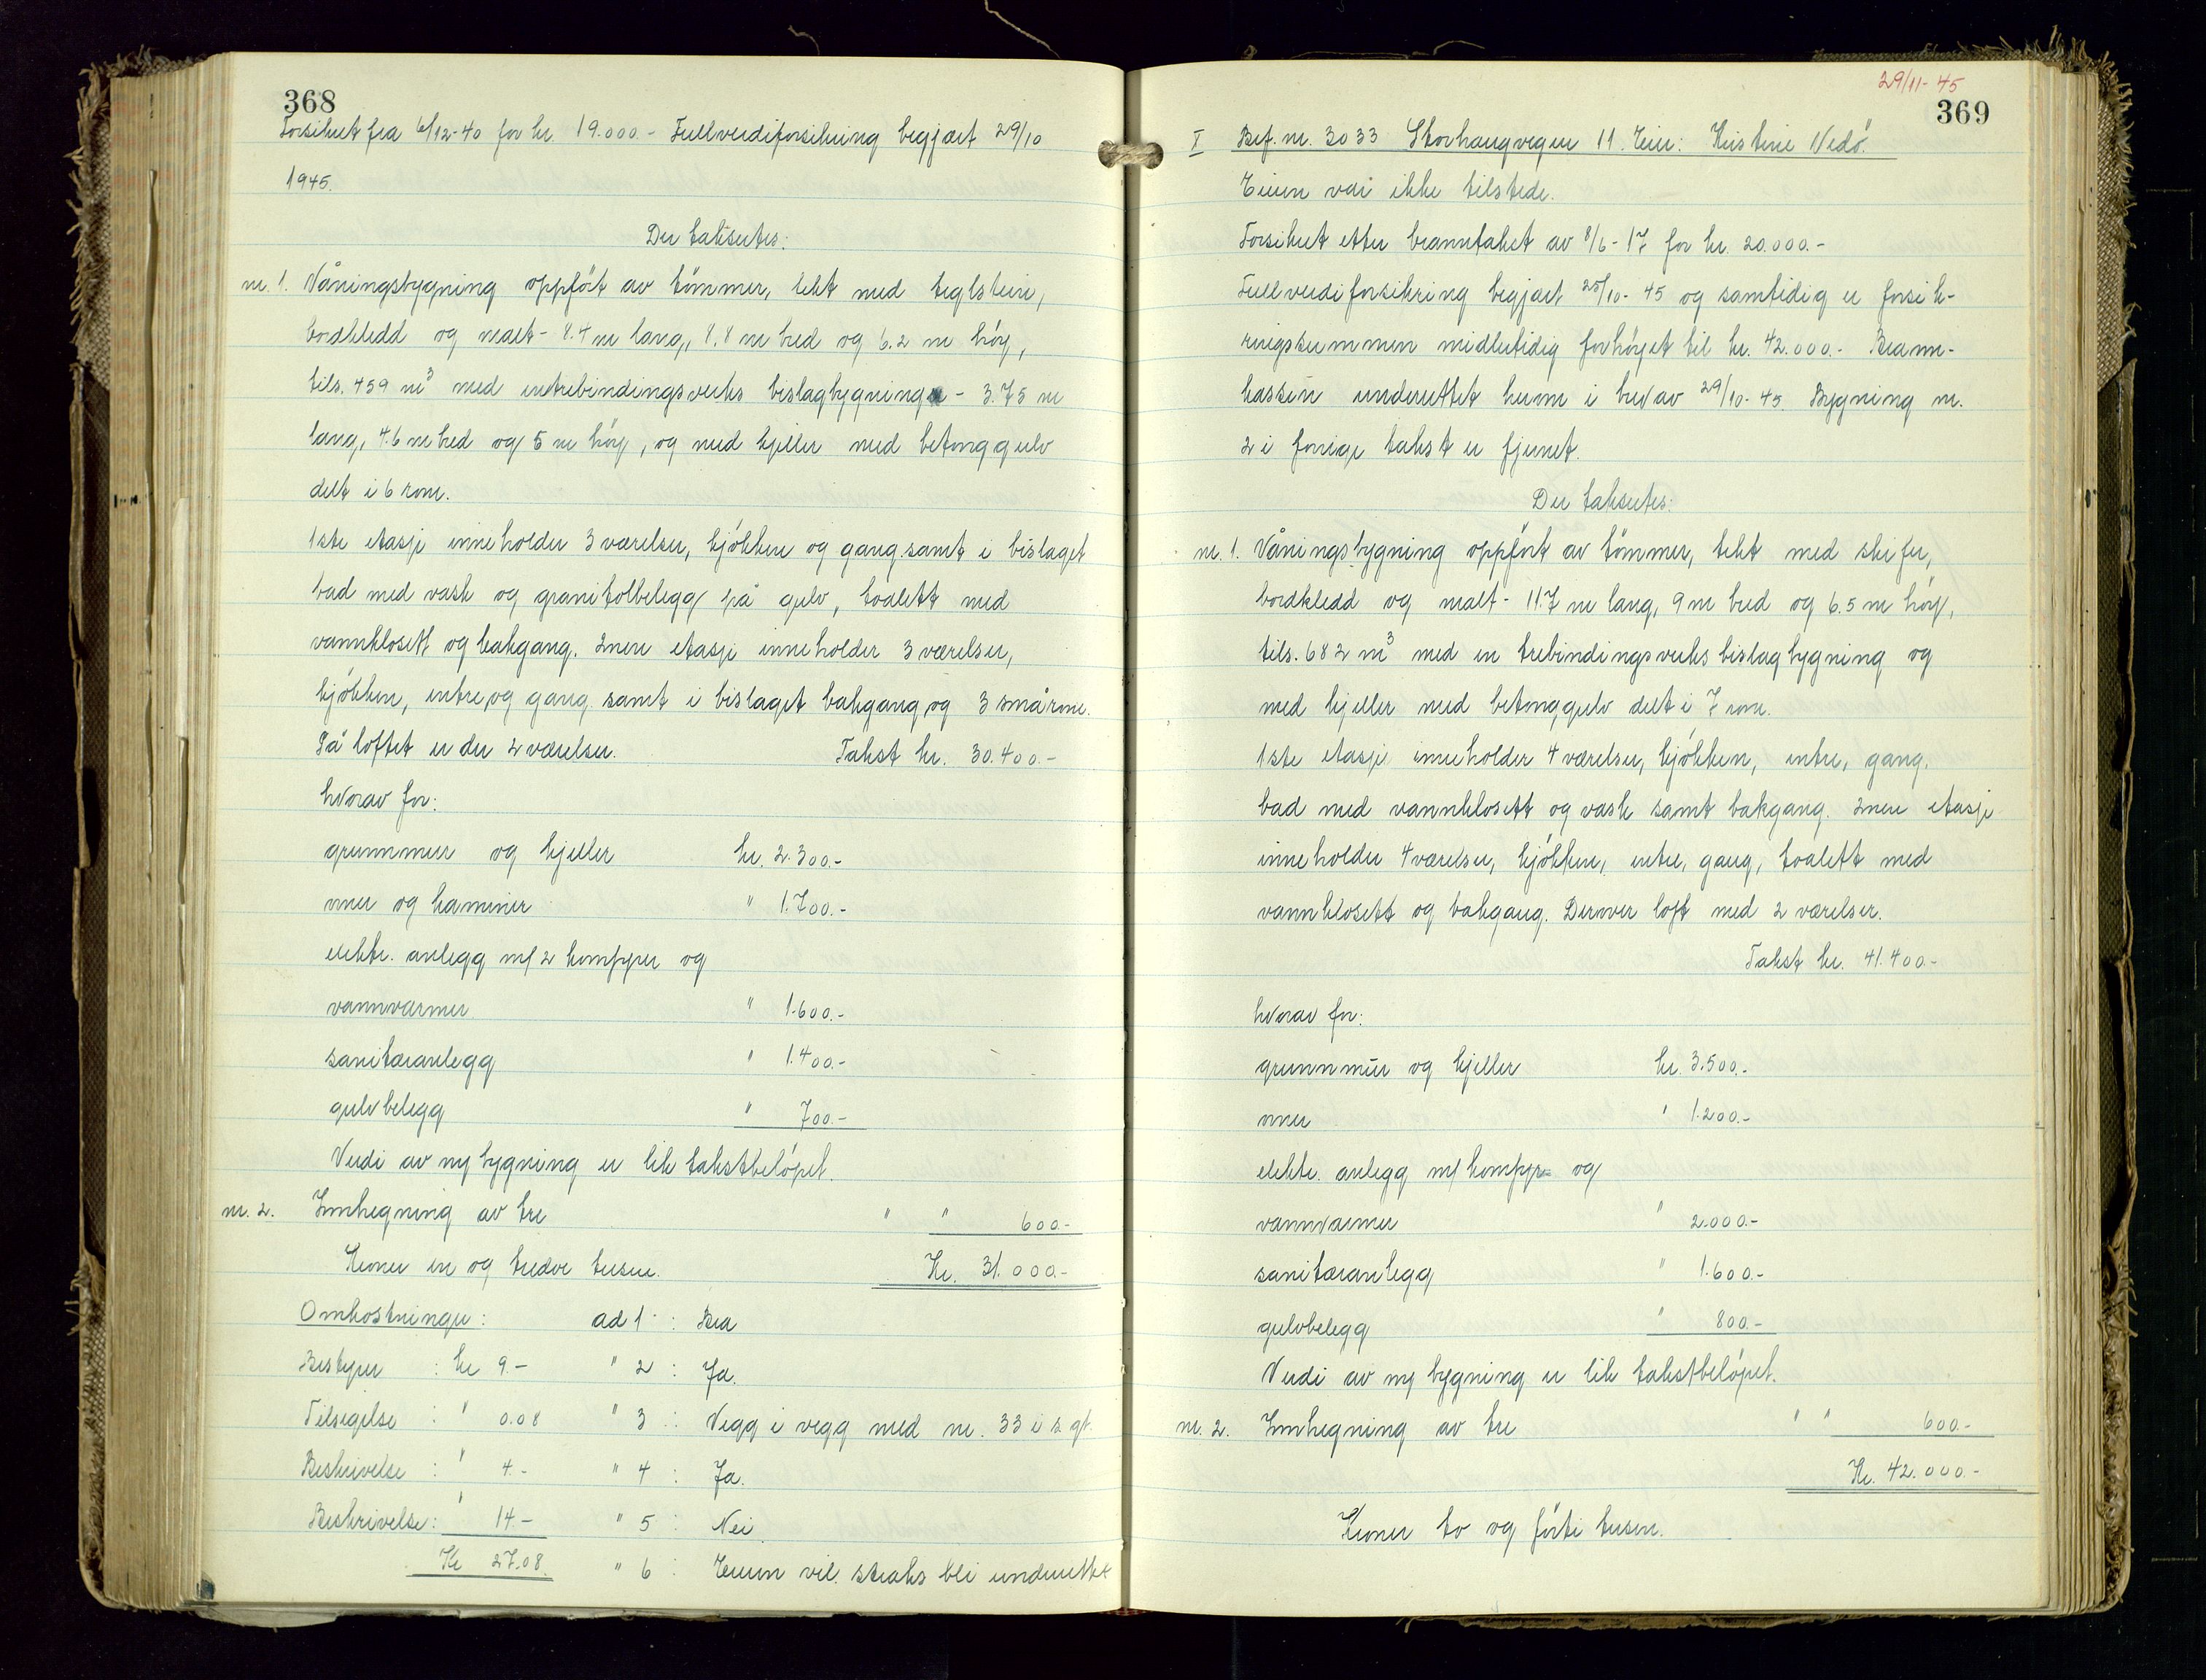 368
Forsikret fra 6/12-40 for kr. 19.000.- Fullverdiforsikring begjært 29/10
1945.
Der takseres:
nr. 1. Våningsbygning oppført av tømmer, tekt med teglstein,
bordkledd og malt - 8.4 m lang, 8.8 m bred og 6.2 m høy,
tils. 459 m³ med entrebindingsverks bislagbygning - 3.75 m
lang, 4.6 m bred og 5 m høy, og med kjeller med betonggulv
delt i 6 rom.
1ste etasje inneholder 3 værelser, kjøkken og gang samt i bislaget
bad med vask og granitolbelegg på gulv, toalett med
vannklosett og bakgang. 2nen etasje inneholder 3 værelser,
kjøkken, entre og gang samt i bislaget bakgang og 3 små rom.
På loftet er der 2 værelser. Takst kr. 30.400.-
hvorav for:
grunnmur og kjeller kr. 2.300.-
ovner og kaminer " 1.700.-
elektr. anlegg m/ 2 komfyrer og
vannvarmer " 1.600.-
sanitæranlegg " 1.400.-
gulvbelegg " 700.-
Verdi av ny bygning er lik takstbeløpet.
nr. 2. Innhegning av tre " " 600.-
Kroner en og tredve tusen. Kr. 31.000.-
Omkostninger: ad 1 : Bra
Bestyrer : kr 9.- " 2 : Ja.
Tilsigelse : " 0.08 " 3 : Vegg i vegg med nr. 33 i s. gt.
Beskrivelse : " 4.- " 4 : Ja.
Beskrivelse: " 14.- " 5 : Nei
Kr 27.08. " 6 : Eieren vil straks bli underrettet
29/11-45
369
I Bef. nr. 3033 Storhaugvegen 11. Eier: Kristine Nedø.
Eieren var ikke tilstede.
Forsikret etter branntakst av 8/6-17 for kr. 20.000.-
Fullverdiforsikring begjært 25/10-45 og samtidig er forsik-
ringssummen midlertidig forhøyet til kr. 42.000.- Brann-
kassen underrettet herom i brev av 29/10-45. Bygning nr.
2 i forrige takst er fjernet.
Der takseres:
nr. 1. Våningsbygning oppført av tømmer, tekt med skifer,
bordkledd og malt - 11.7 m lang, 9 m bred og 6.5 m høy,
tils. 682 m³ med en trebindingsverks bislagbygning og
med kjeller med betonggulv delt i 7 rom.
1ste etasje inneholder 4 værelser, kjøkken, entre, gang,
bad med vannklosett og vask samt bakgang. 2nen etasje
inneholder 4 værelser, kjøkken, entre, gang, toalett med
vannklosett og bakgang. Derover loft med 2 værelser.
Takst kr. 41.400.-
hvorav for:
grunnmur og kjeller kr. 3.500.-
ovner " 1.200.-
elektr. anlegg m/ komfyr og
vannvarmer " 2.000.-
sanitæranlegg " 1.600.-
gulvbelegg " 800.-
Verdi av ny bygning er lik takstbeløpet.
nr. 2. Innhegning av tre " " 600.-
Kr. 42.000.-
Kroner to og førti tusen.